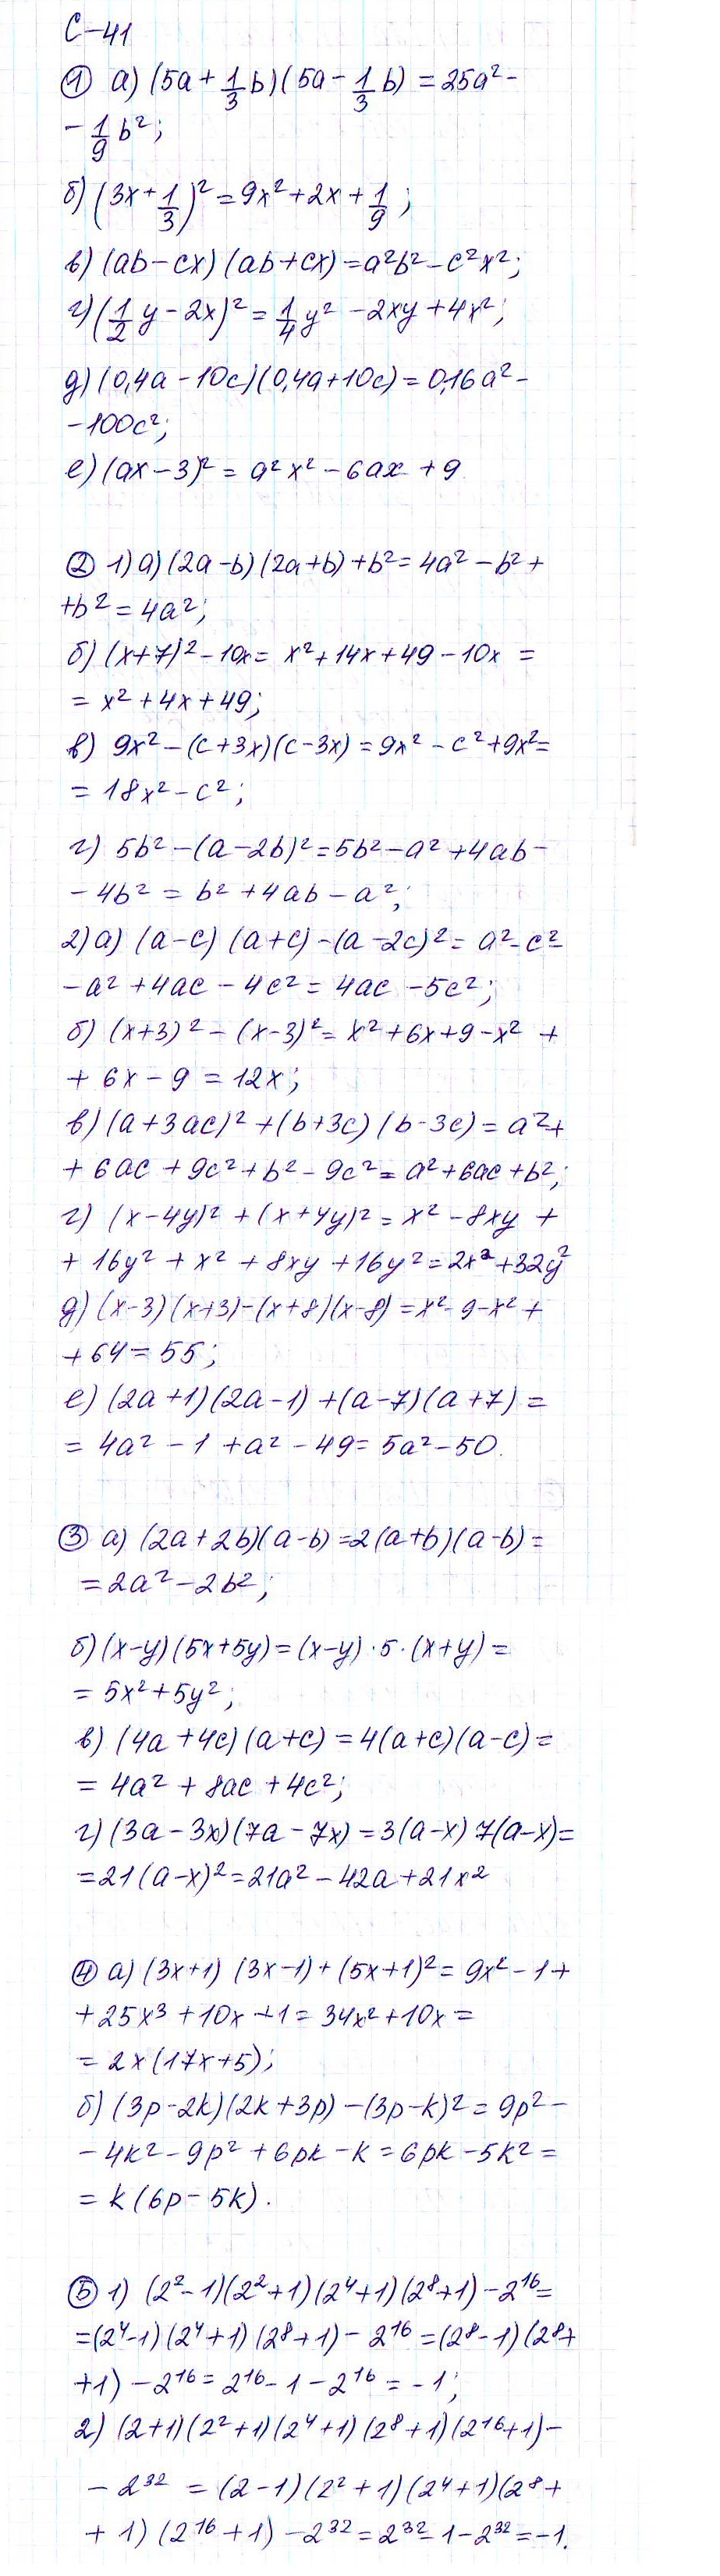 С-41
① а) (5a + 1/3 b)(5a - 1/3 b) = 25a² -
- 1/9 b²;
б) (3x + 1/3)² = 9x² + 2x + 1/9;
в) (ab - cx)(ab + cx) = a²b² - c²x²;
г) (1/2 y - 2x)² = 1/4 y² - 2xy + 4x²;
д) (0,4a - 10c)(0,4a + 10c) = 0,16a² -
- 100c²;
е) (ax - 3)² = a²x² - 6ax + 9
② 1) а) (2a - b)(2a + b) + b² = 4a² - b² +
+ b² = 4a²;
б) (x + 7)² - 10x = x² + 14x + 49 - 10x =
= x² + 4x + 49;
в) 9x² - (c + 3x)(c - 3x) = 9x² - c² + 9x² =
= 18x² - c²;
г) 5b² - (a - 2b)² = 5b² - a² + 4ab -
- 4b² = b² + 4ab - a²;
2) а) (a - c)(a + c) - (a - 2c)² = a² - c² -
- a² + 4ac - 4c² = 4ac - 5c²;
б) (x + 3)² - (x - 3)² = x² + 6x + 9 - x² +
+ 6x - 9 = 12x;
в) (a + 3ac)² + (b + 3c)(b - 3c) = a² +
+ 6ac + 9c² + b² - 9c² = a² + 6ac + b²;
г) (x - 4y)² + (x + 4y)² = x² - 8xy +
+ 16y² + x² + 8xy + 16y² = 2x² + 32y²
д) (x - 3)(x + 3) - (x + 8)(x - 8) = x² - 9 - x² +
+ 64 = 55;
е) (2a + 1)(2a - 1) + (a - 7)(a + 7) =
= 4a² - 1 + a² - 49 = 5a² - 50.
③ а) (2a + 2b)(a - b) = 2(a + b)(a - b) =
= 2a² - 2b²;
б) (x - y)(5x + 5y) = (x - y) · 5 · (x + y) =
= 5x² + 5y²;
в) (4a + 4c)(a + c) = 4(a + c)(a - c) =
= 4a² + 8ac + 4c²;
г) (3a - 3x)(7a - 7x) = 3(a - x) 7(a - x) =
= 21(a - x)² = 21a² - 42a + 21x²
④ а) (3x + 1)(3x - 1) + (5x + 1)² = 9x² - 1 +
+ 25x³ + 10x + 1 = 34x² + 10x =
= 2x(17x + 5);
б) (3p - 2k)(2k + 3p) - (3p - k)² = 9p² -
- 4k² - 9p² + 6pk - k = 6pk - 5k² =
= k(6p - 5k).
⑤ 1) (2² - 1)(2² + 1)(2⁴ + 1)(2⁸ + 1) - 2¹⁶ =
= (2⁴ - 1)(2⁴ + 1)(2⁸ + 1) - 2¹⁶ = (2⁸ - 1)(2⁸ +
+ 1) - 2¹⁶ = 2¹⁶ - 1 - 2¹⁶ = -1;
2) (2 + 1)(2² + 1)(2⁴ + 1)(2⁸ + 1)(2¹⁶ + 1) -
- 2³² = (2 - 1)(2² + 1)(2⁴ + 1)(2⁸ +
+ 1)(2¹⁶ + 1) - 2³² = 2³² - 1 - 2³² = -1.